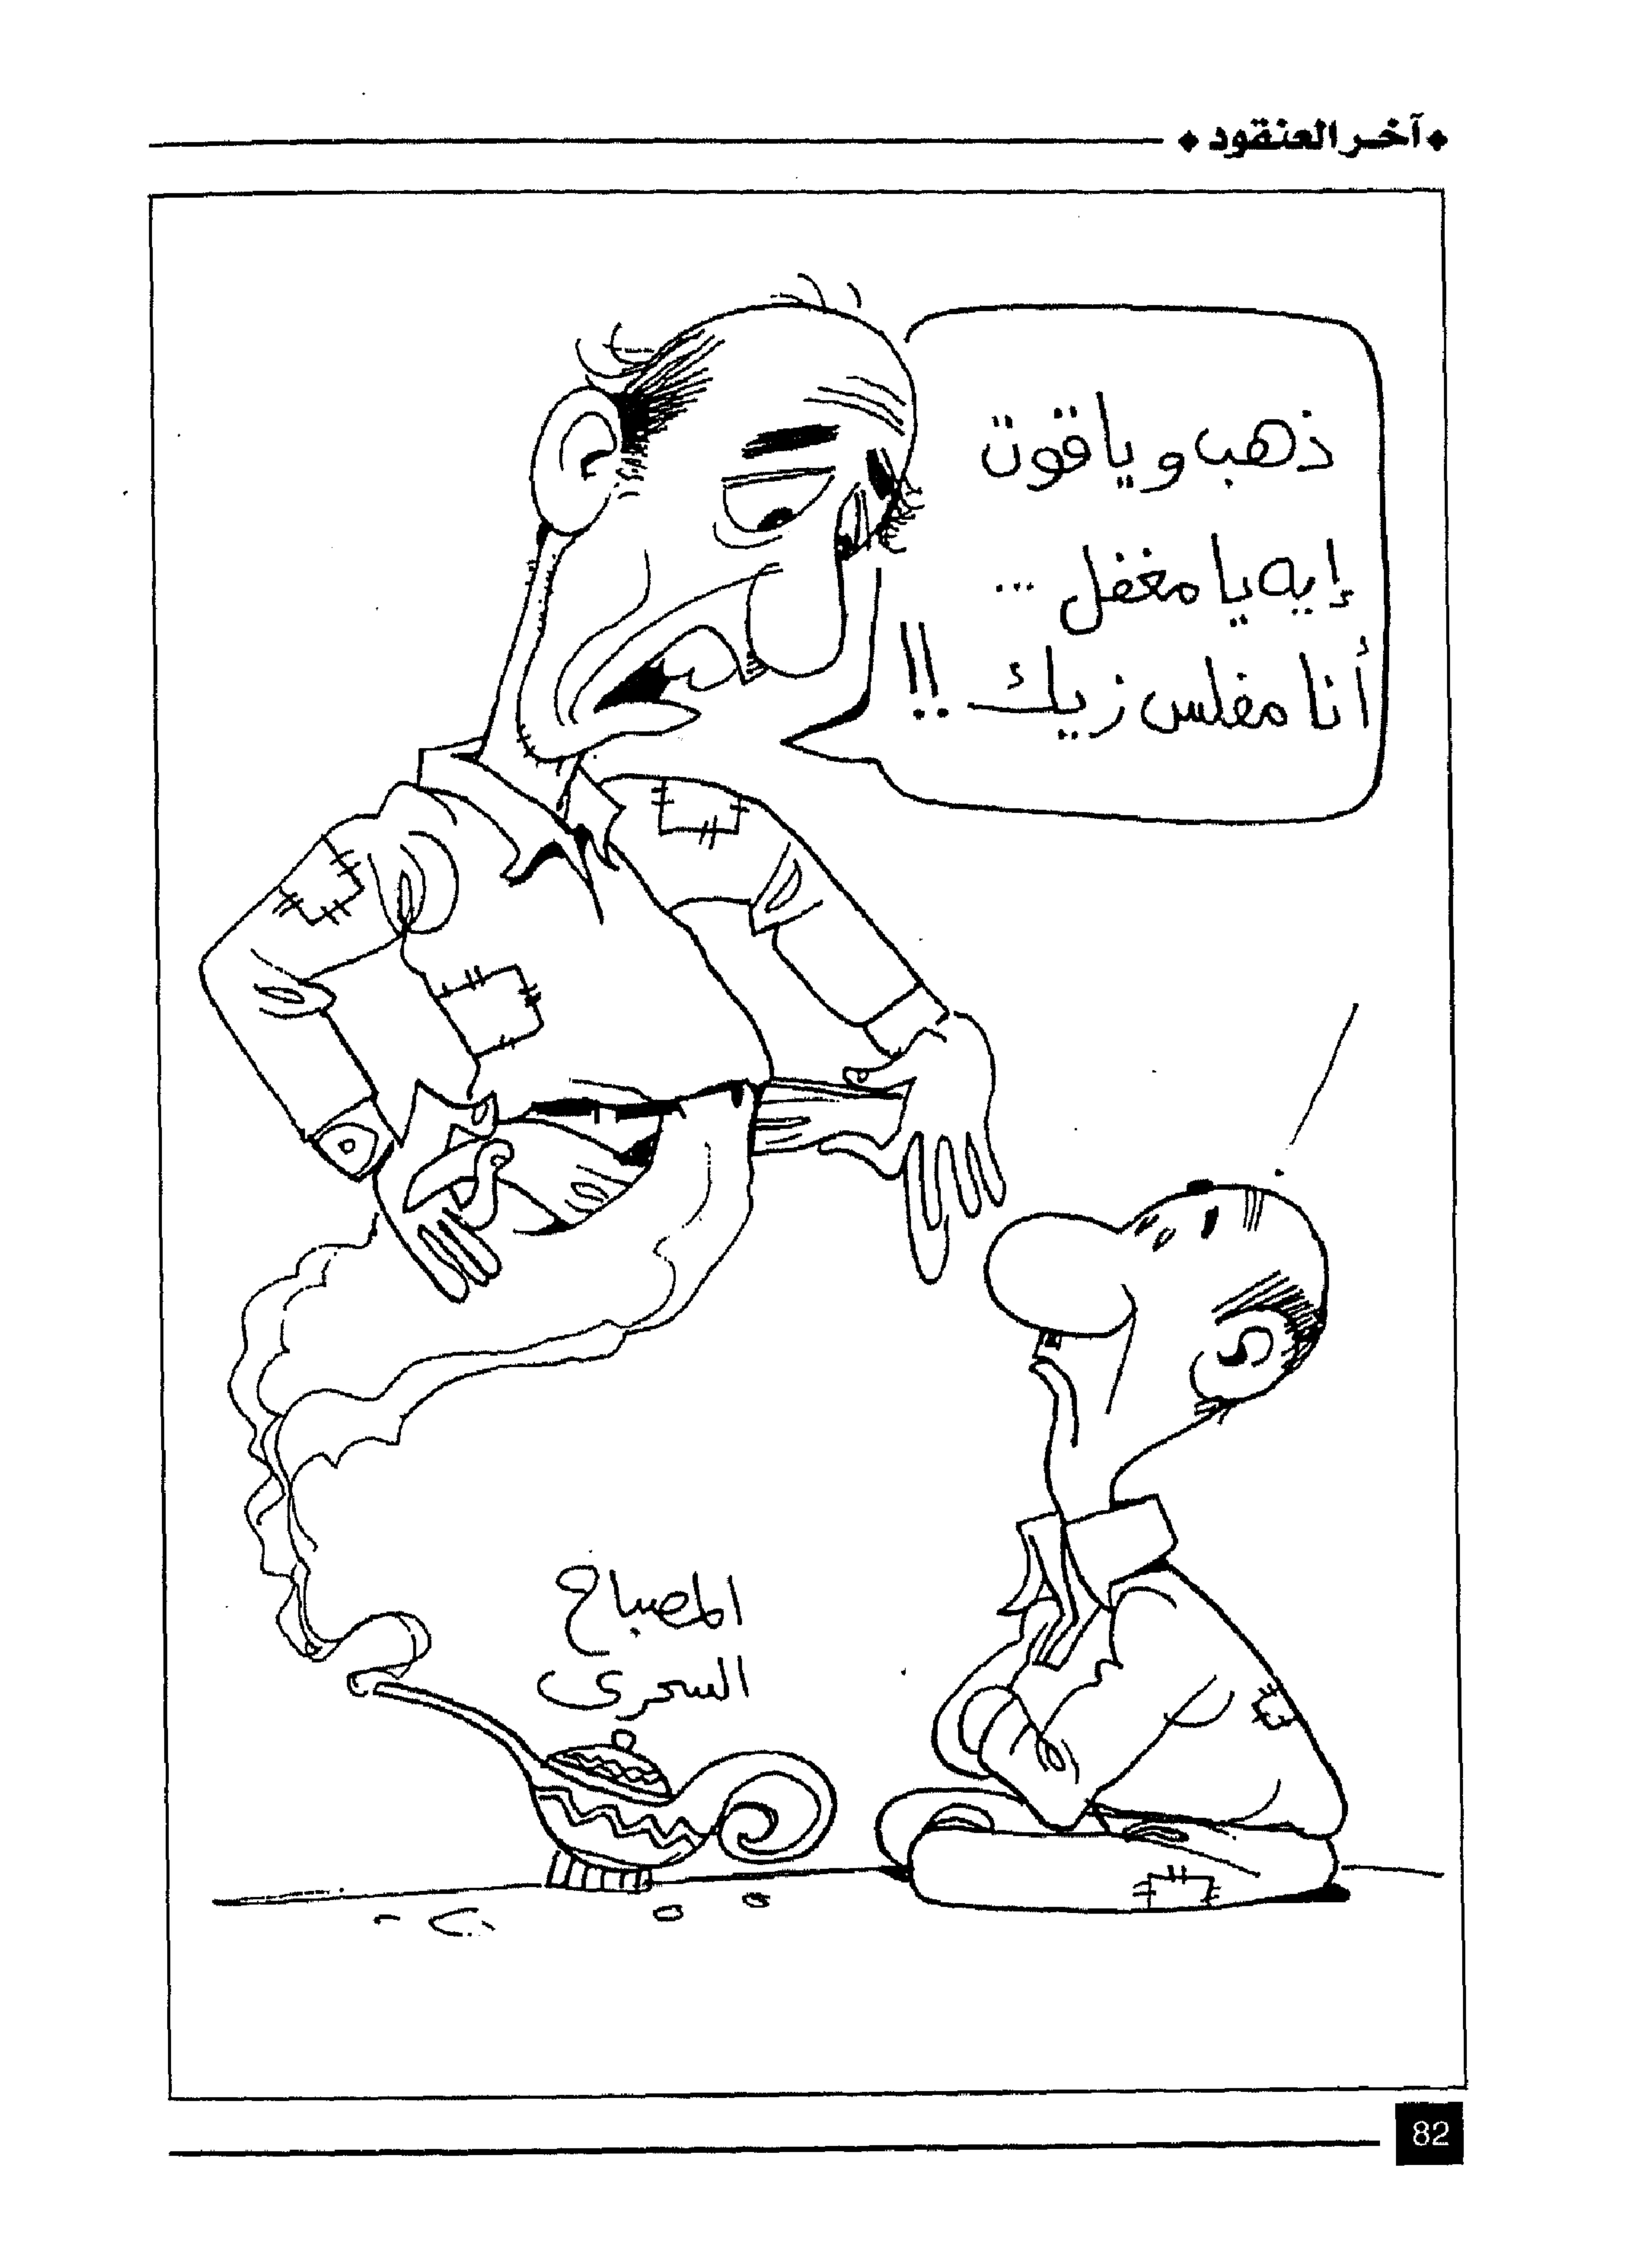 آخر العنقود
ذهب و ياقوت
إيه يا مغفل ...
أنا مفلس زيك !!
المصباح
السحرى
82